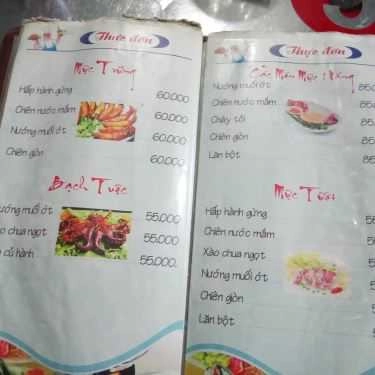 Thực đơn
Mực Trứng
Hấp hành gừng 60.000
Chiên nước mắm 60.000
Nướng muối ớt 60.000
Chiên giòn 60.000
Bạch Tuộc
nướng muối ớt 55.000
chua ngọt 55.000
củ hành 55.000
Thực đơn
Các Món Mực
Nướng muối ớt
Chiên nước mắm
Cháy tỏi
Chiên giòn
Lăn bột
Mực Tươi
Hấp hành gừng
Chiên nước mắm
Xào chua ngọt
Nướng muối ớt
Chiên giòn
Lăn bột